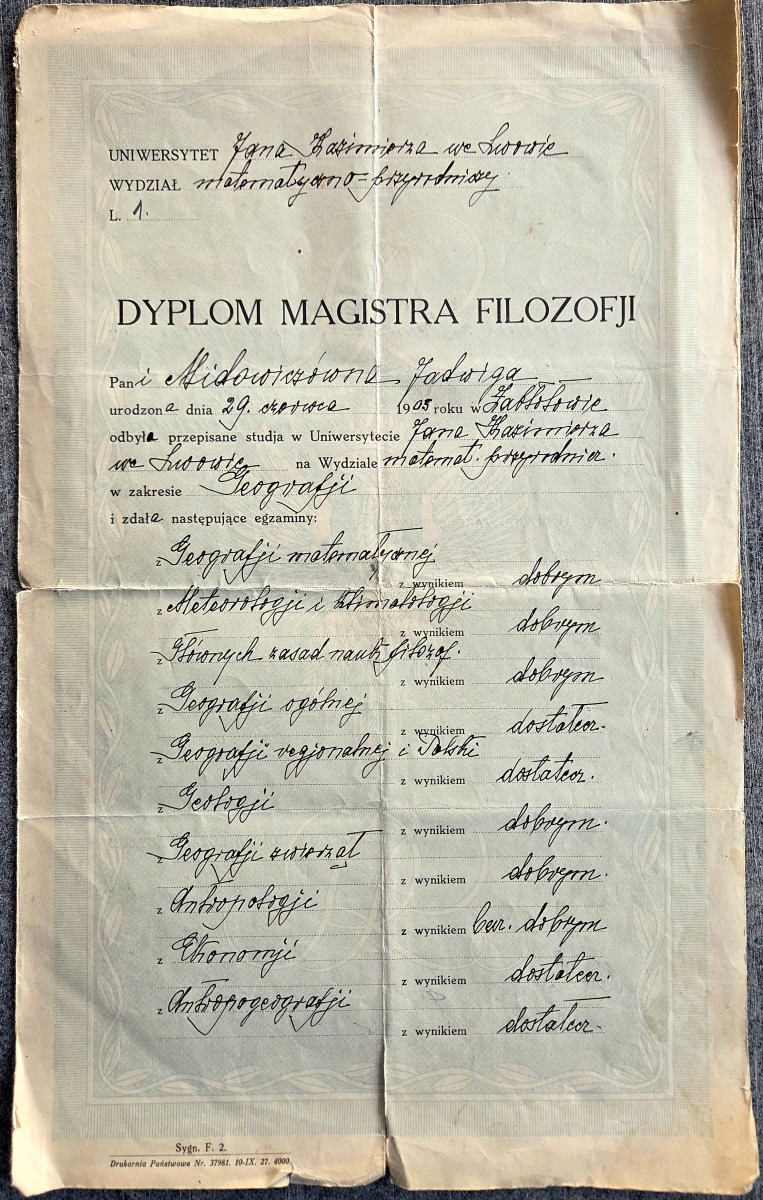 UNIWERSYTET Jana Kazimierza we Lwowie
WYDZIAŁ matematyczno-przyrodniczy.
L. 1.
DYPLOM MAGISTRA FILOZOFJI
Pani Midowiczówna Jadwiga
urodzona dnia 29. czerwca 1903 roku w Zabłotowie
odbyła przepisane studja w Uniwersytecie Jana Kazimierza
we Lwowie na Wydziale matemat. przyrodnicz.
w zakresie Geografji
i zdała następujące egzaminy:
z Geografji matematycznej
z wynikiem dobrym
z Meteorologji i klimatologji
z wynikiem dobrym
z Głównych zasad nauk filozof.
z wynikiem dobrym
z Geografji ogólnej
z wynikiem dostatecz.
z Geografji regjonalnej i Polski
z wynikiem dostatecz.
z Geologji
z wynikiem dobrym.
z Geografji zwierząt
z wynikiem dobrym.
z Antropologji
z wynikiem barz. dobrym
z Ekonomji
z wynikiem dostatecz.
z Antropogeografji
z wynikiem dostatecz.
Sygn. F. 2.
Drukarnia Państwowa Nr. 37981. 10-IX. 27. 4000.